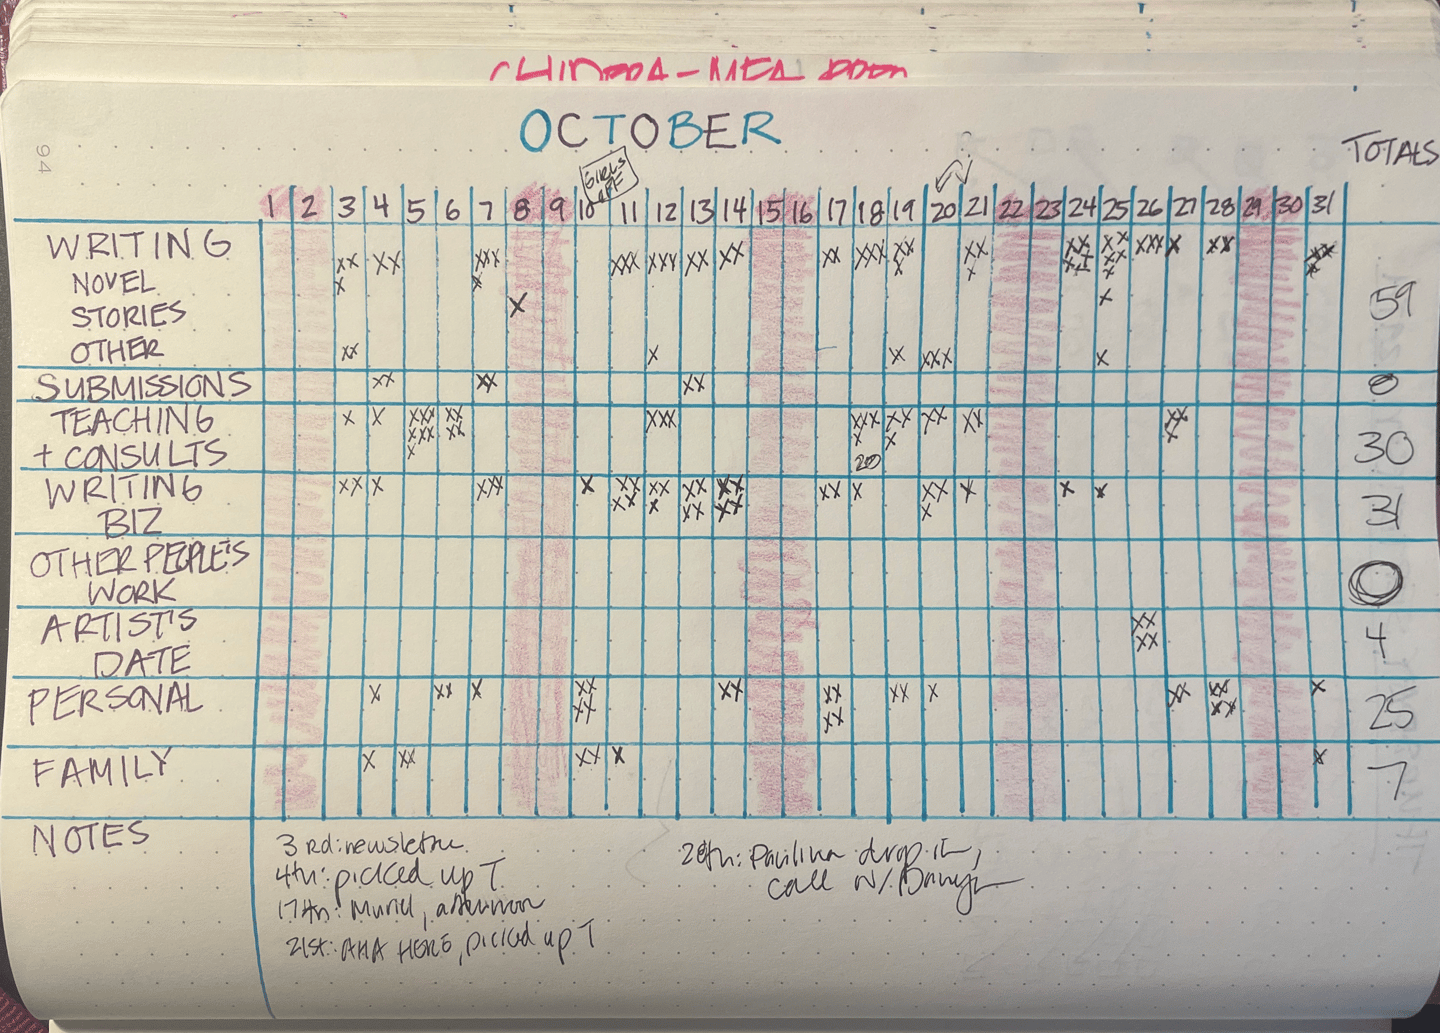 94
OCTOBER
TOTALS
GIRLS
OFF
1 2 3 4 5 6 7 8 9 10 11 12 13 14 15 16 17 18 19 20 21 22 23 24 25 26 27 28 29 30 31
WRITING XX XX XXX XXX XXX XX XX XX XXX XX XX XX XX XXX X XX XX
NOVEL X X X X XX XX X
STORIES X X 59
OTHER XX X X XXX X
SUBMISSIONS XX XX XX 0
TEACHING X X XXX XX XXX XXX XX XX XX XX
+ CONSULTS XXX XX X X X X 30
WRITING XX X XX X XX XX XX XX XX X XX X X X
BIZ XX X XX XX X 31
OTHER PEOPLE'S
WORK 0
ARTIST'S XX
DATE XX 4
PERSONAL X XX X XX XX XX XX X XX XX X
XX XX XX 25
FAMILY X XX XX X X 7
NOTES
3rd: newsletter
4th: picked up T
17th: Muriel, afternoon
21st: AHA HERE, picked up T
drop in,
call w/